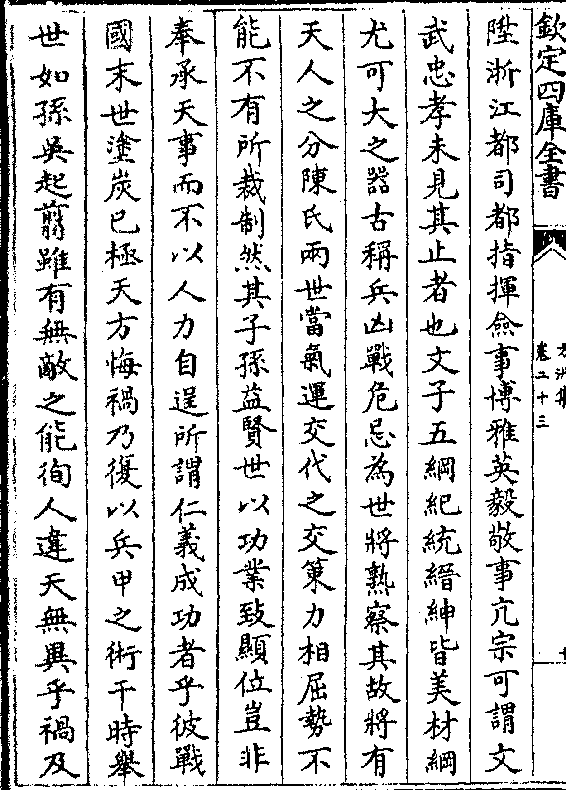 欽定四庫全書
卷二十三
陞浙江都司都指揮僉事博雅英毅敬事亢宗可謂文
武忠孝未見其止者也文子五綱紀統縉紳皆美材綱
尤可大之器古稱兵凶戰危忌為世將熟察其故將有
天人之分陳氏兩世當氣運交代之交策力相屈勢不
能不有所裁制然其子孫益賢世以功業致顯位豈非
奉承天事而不以人力自逞所謂仁義成功者乎彼戰
國末世塗炭已極天方悔禍乃復以兵甲之術干時舉
世如孫吳起翦雖有無敵之能徇人違天無異乎禍及